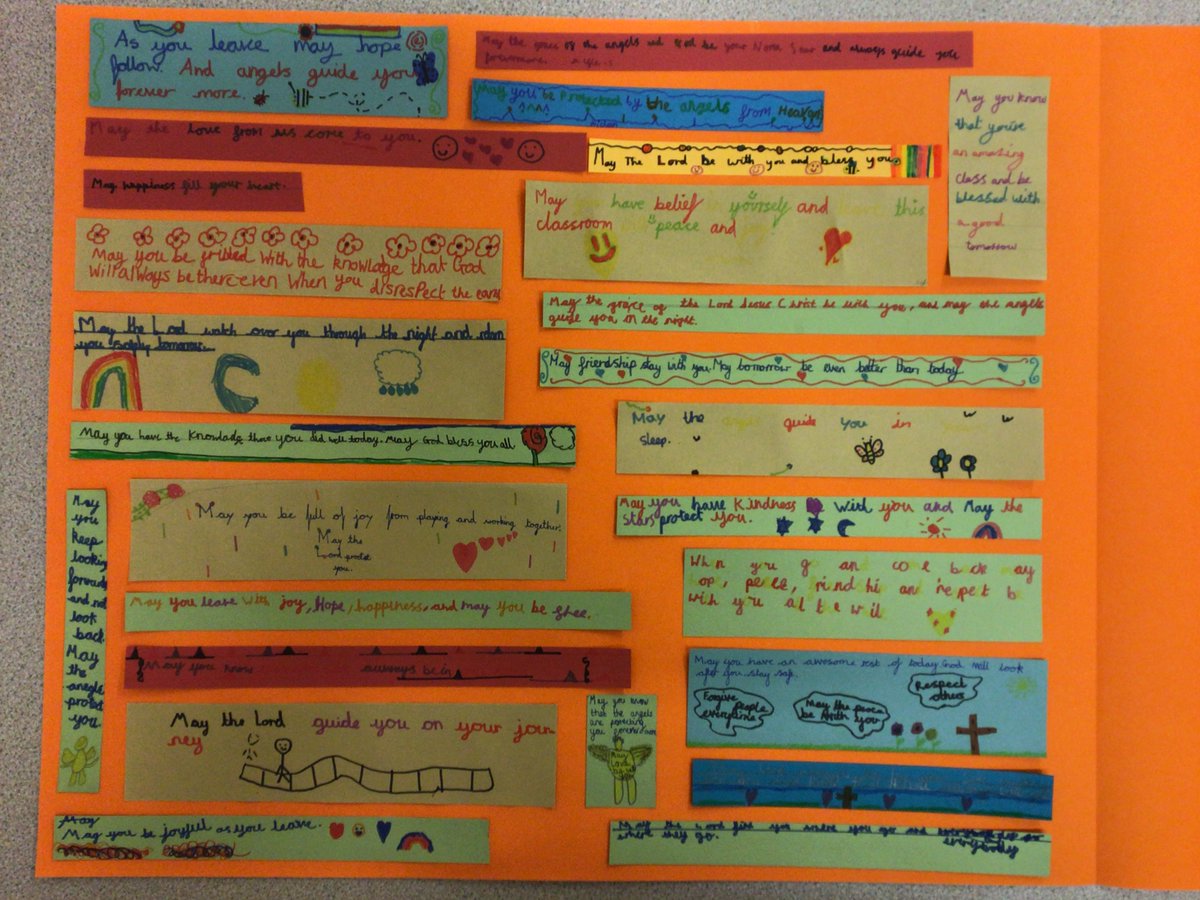 As you leave may hope
follow. And angels guide you
forever more.
May the of the angels and God be your and always guide you
May you be Protected by the angels from Heaven
May the Love from his come to you.
May The Lord Be with you and bless you
May you know
that you're
an amazing
class and be
blessed with
a good
tomorrow
May happiness fill your heart.
May have belief in yourself and this
classroom peace and
May you be friuled With the knowledge that God
Will always be there even When you disrespect the earth
May the grace of the Lord Jesus Christ be with you, and may the angels
guide you in the night.
May the Lord watch over you through the night and
you safely tomorrow.
May friendship stay with you. May tomorrow be even better than today.
May the guide you in
sleep.
May you have the you did well today. May God bless you all
May
you
keep
looking
forwards
and not
look
back.
May
the
angels
protect
you.
May you be full of joy from playing and working together.
May the
Lord protect
you.
May you have Kindness with you and May the
stars protect you.
When you go and come back may
hope, peace, and respect
with you
May you leave with joy, Hope, happiness, and may you be
May you know always be in
May you have an awesome rest of today. God will look
after you. stay safe.
Forgive
people
everytime
May the peace
be with you
Respect
others
May the Lord guide you on your jour
ney
May you know
that the angels
are protecting
you
May
Lord
May
May you be joyful as you leave.
May the Lord fill you where you go and
where they go. everybody